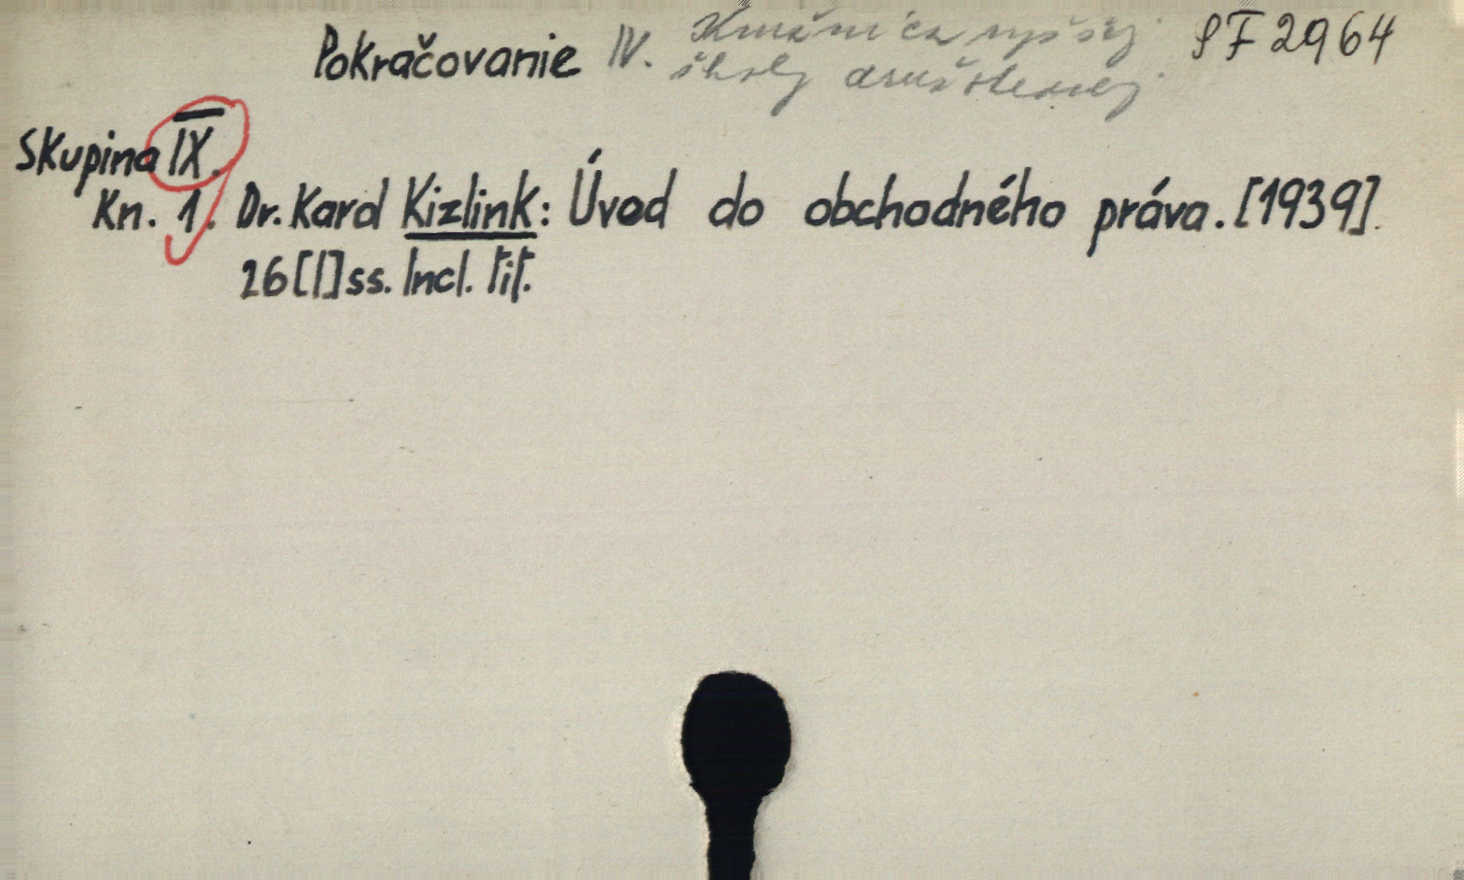 Pokračovanie IV. Knižnica vyššej SF 2964
školy družstevnej
Skupina IX.
Kn. 1. Dr. Karol Kizlink: Úvod do obchodného práva. [1939].
26 [1] ss. Incl. tit.